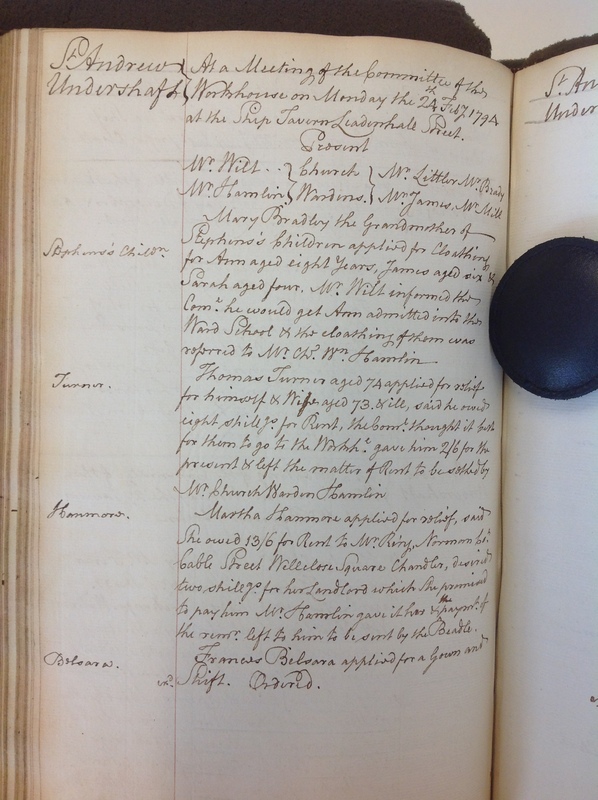 St. Andrew } At a Meeting of the Committee of the
Undershaft } Workhouse on Monday the 24th Feby. 1794
at the Ship Tavern Leadenhale Street.
Present
Mr. Wilt .. } Church { Mr. Littler Mr. Brady
Mr. Hamlin } Wardens { Mr. James, Mr. Mill
Mary Bradley the Grandmother of
Stephens's Childn. Stephens's Children applied for Cloathing
for Ann aged eight Years, James aged six &
Sarah aged four. Mr. Wilt informed the
Come. he would get Ann admitted into the
Ward School & the cloathing of them was
referred to Mr. Ch. Wn. Hamlin
Turner. Thomas Turner aged 74 applied for relief
for himself & Wife aged 73. & ill, said he owed
eight shillgs. for Rent, the Come. thought it best
for them to go to the Workhe. gave him 2/6 for the
present & left the matter of Rent to be settled by
Mr. Church Warden Hamlin
Hanmore. Martha Hanmore applied for relief, said
She owed 13/6 for Rent to Mr. Norman
Cable Street Wellclose Square Chandler, desired
two shillgs. for her Landlord which She promised
to pay him Mr. Hamlin gave it her & the paymt. of
the remr. left to him to be sent by the Beadle.
Belsara. Frances Belsara applied for a Gown and
Shift. Ordered.
St. An
Under